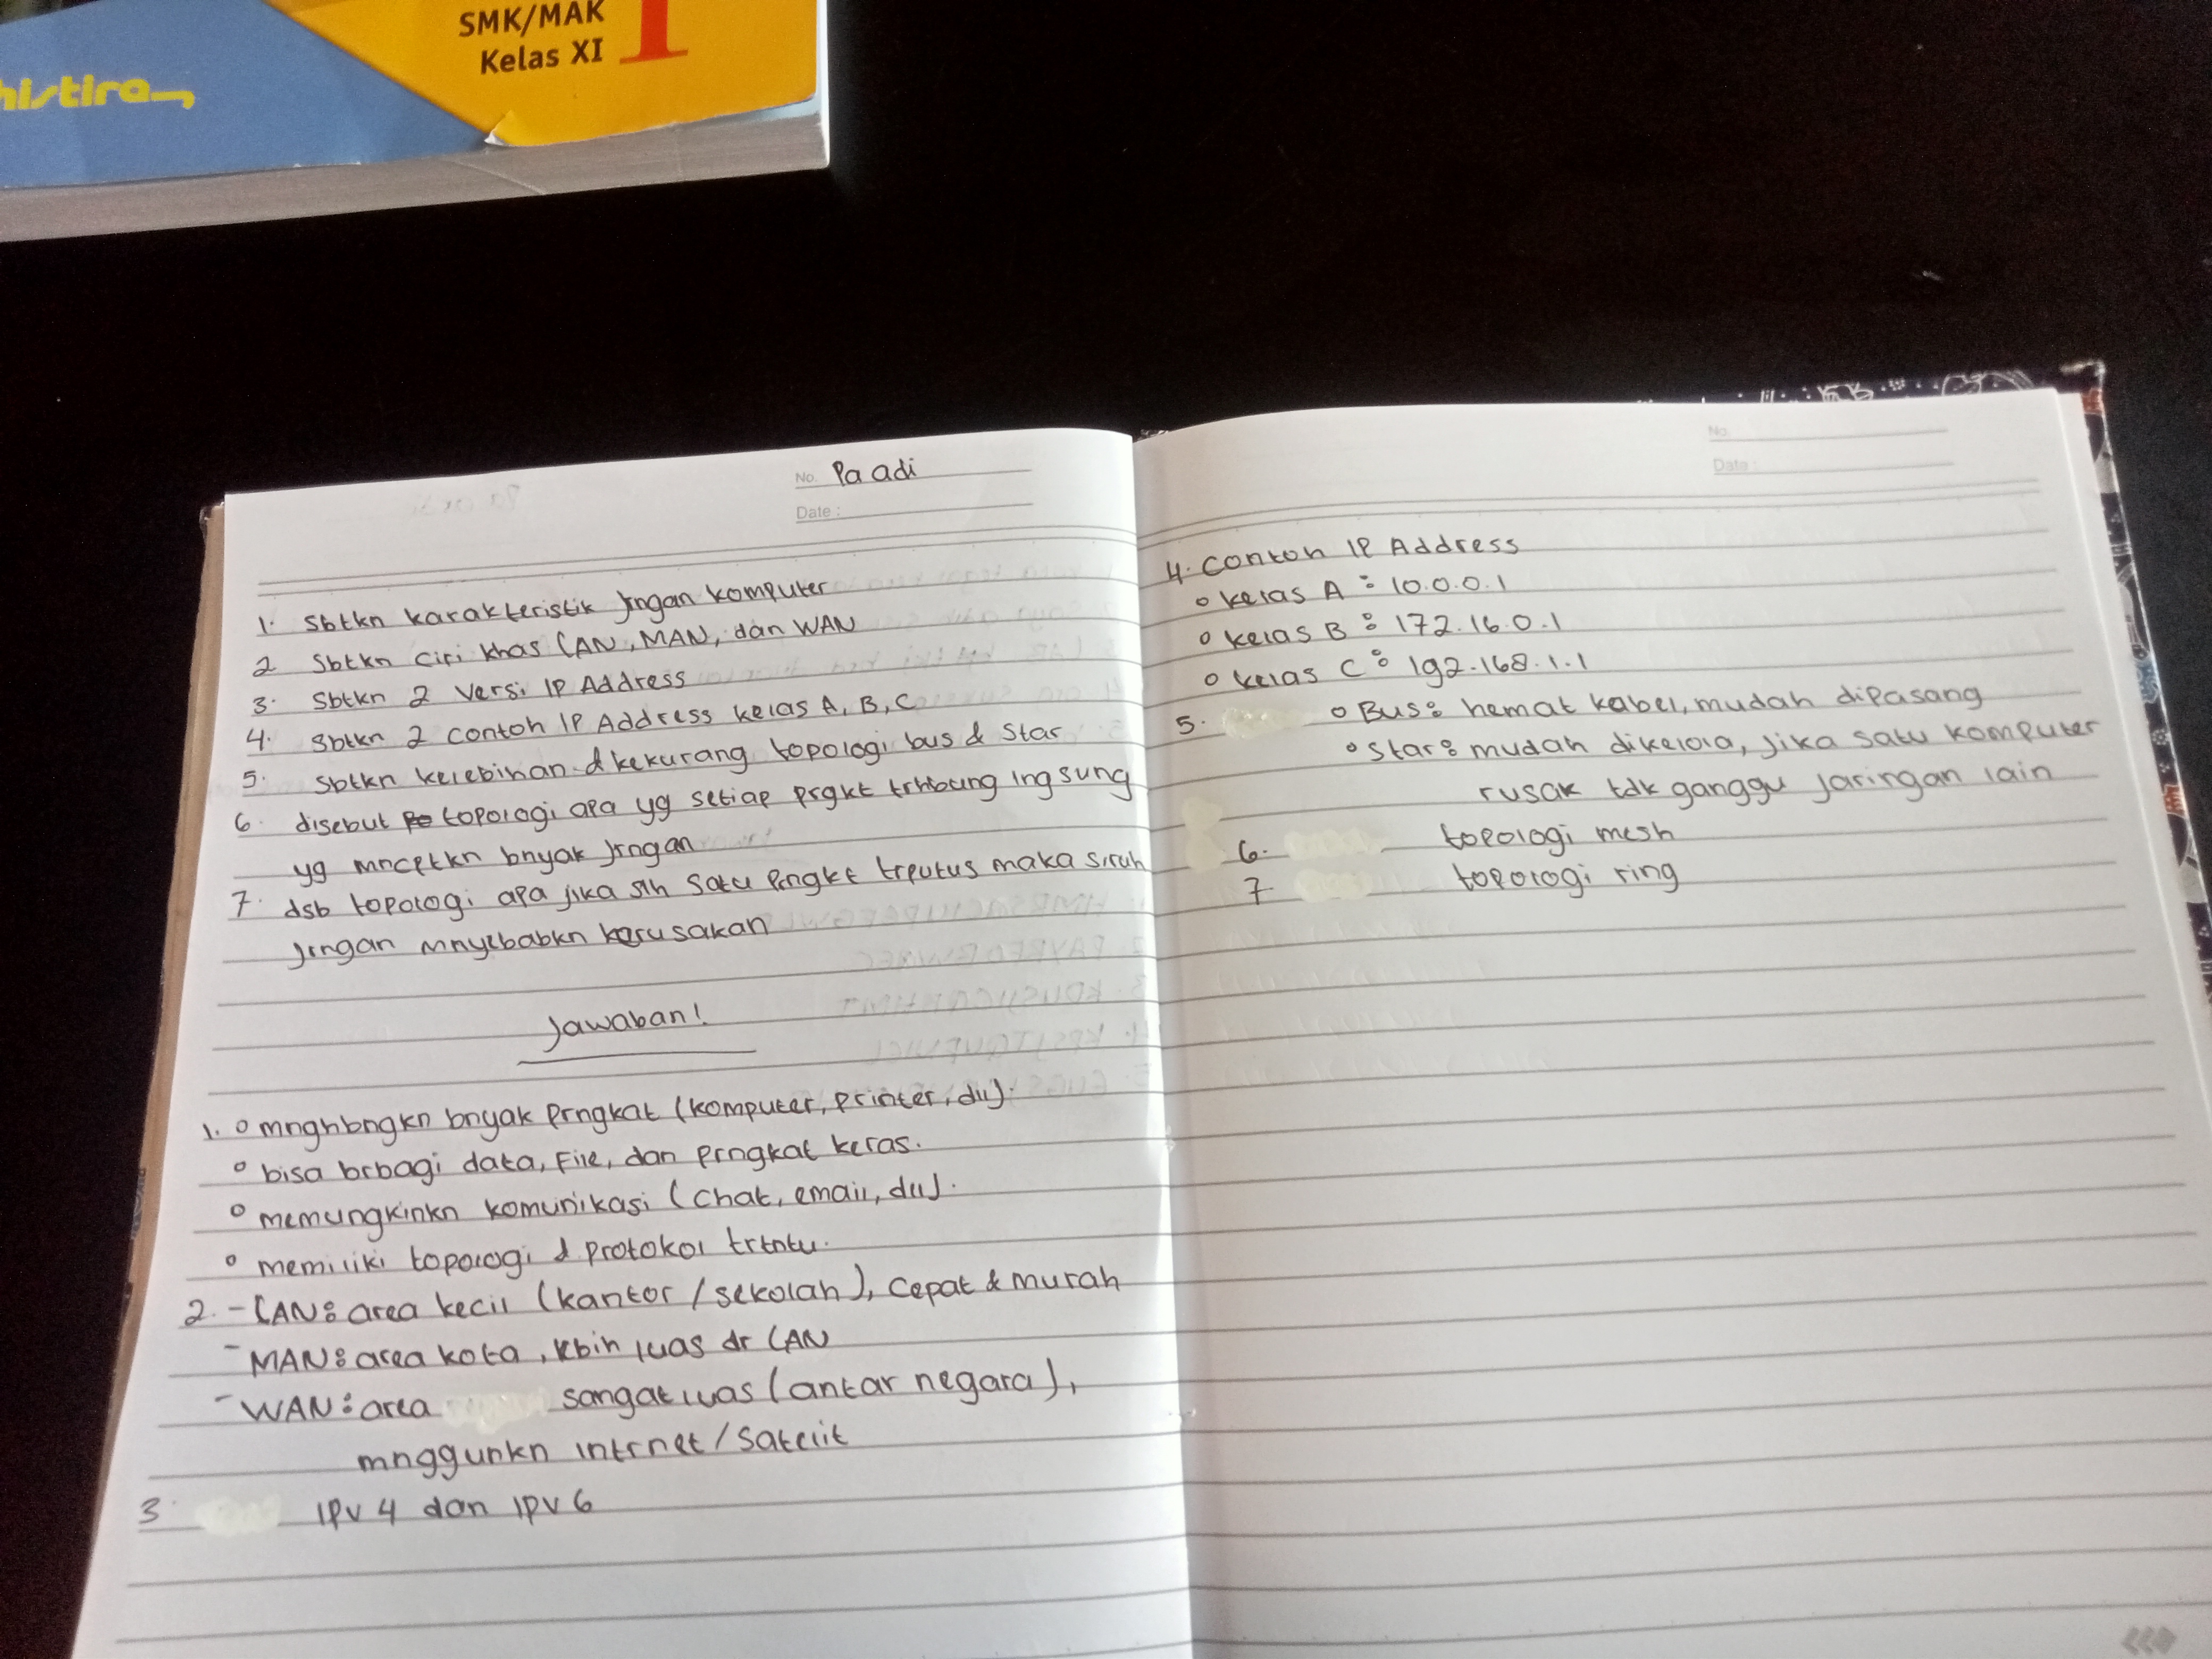 SMK/MAK
Kelas XI
1
histira
No. Pa adi
Date :
1. Sbtkn karakteristik jngan komputer
2 Sbtkn ciri khas LAN, MAN, dan WAN
3. Sbtkn 2 versi IP Address
4. Sbtkn 2 contoh IP Address kelas A, B, C
5. Sbtkn kelebihan & kekurang topologi bus & Star
6. disebut topologi apa yg setiap prgkt trhbung lngsung
yg mncptkn bnyak jrngan
7. dsb topologi apa jika slh satu prngkt trputus maka slruh
jrngan mnyebabkn kerusakan
Jawaban!
1. o mnghbngkn bnyak prngkat (komputer, printer, dll).
o bisa brbagi data, File, dan prngkat keras.
o memungkinkn komunikasi (chat, email, dll).
o memiliki topologi & protokol trtntu.
2. - LAN: area kecil (kantor / sekolah), cepat & murah
- MAN: area kota, lbih luas dr LAN
- WAN: area sangat luas (antar negara),
mnggunkn intrnet / satelit
3. IPv 4 dan IPv 6
No.
Date :
4. Contoh IP Address
o kelas A : 10.0.0.1
o kelas B : 172.16.0.1
o kelas C : 192.168.1.1
5. o Bus: hemat kabel, mudah dipasang
o Star: mudah dikelola, jika satu komputer
rusak tdk ganggu jaringan lain
6. topologi mesh
7. topologi ring